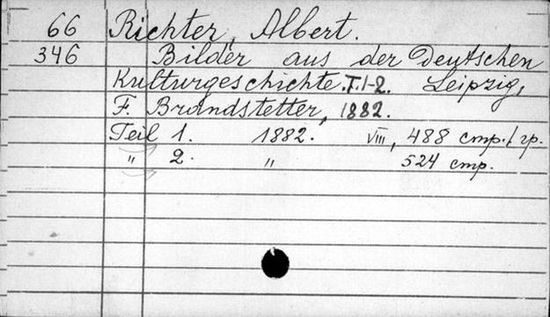 66 Richter, Albert.
346 Bilder aus der Deutschen
Kulturgeschichte. T. 1-2. Leipzig,
F. Brandstetter, 1882.
Teil 1. 1882. VIII, 488 стр./гр.
„ 2. „ 524 стр.